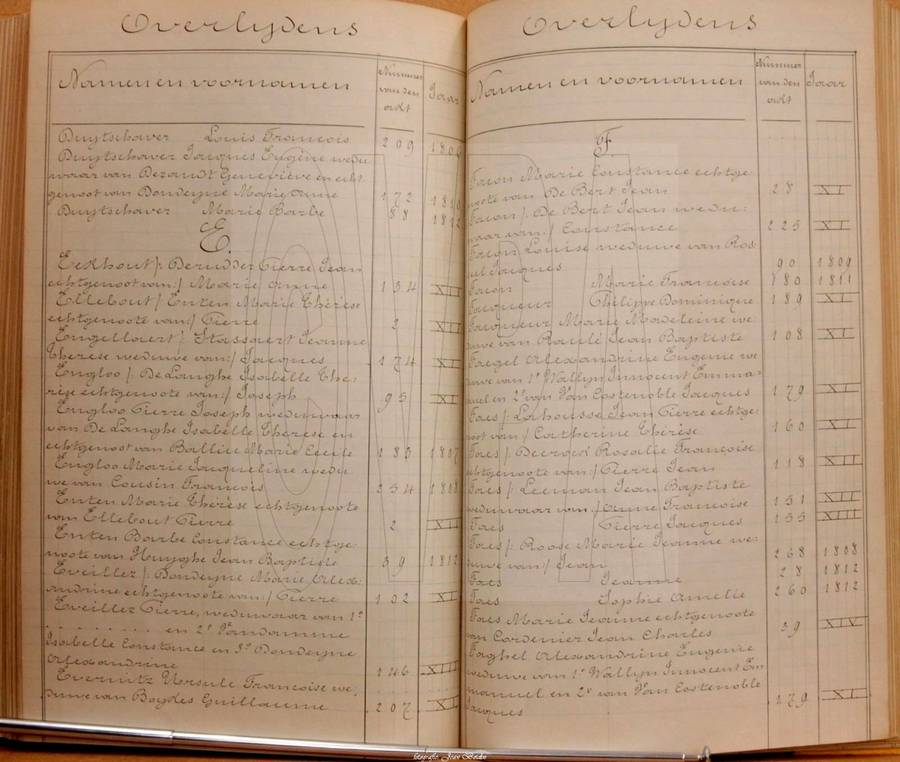 Overlydens
Namen en voornamen
Nummer van den acdt
Jaar
Duytschaver Louis François 209 180
Duytschaver Jacques Eugène wedu
waar van Dezandt Geneviève en echt
genoot van Dondeyne Marie Anne 172 1810
Duytschaver Marie Barbe 88 1812
E.
Eekhout /: Derudder Pierre Jean
echtgenoot van :/ Marie Anne 134 XII
Ellebout / Enten Marie Thérèse
echtgenoote van :/ Pierre 2 XII
Engellaert /: Stassaert Jeanne
Thérèse weduwe van :/ Jacques 174 XI
Engloo /: De Langhe Isabelle Thé-
rèse echtgenoote van :/ Joseph 95 XI
Engloo Pierre Joseph weduwaar
van De Langhe Isabelle Thérèse en
echtgenoot van Ballieu Marie Cecile 183 1807
Engloo Marie Jacqueline wedu
we van Cousin François 234 1808
Enten Marie Thérèse echtgenoote
van Ellebout Pierre 2 XII
Enten Barbe Constance echtge-
noote van Huyghe Jean Baptiste 39 1812
Eveillez /: Dondeyne Marie Alex-
andrine echtgenoote van :/ Pierre 102 XI
Eveillez Pierre, weduwaar van 1°
. . . . . . . . . en 2° Vandamme
Isabelle Constance en 3° Dondeyne
Alexandrine 146 XIII
Evernitz Ursule Françoise we,
duwe van Boydes Guillaume 207 XI
Overlydens
Namen en voornamen
Nummer van den acdt
Jaar
F
Facon Marie Constance echtge
noote van De Bert Jean 28 XI
Facon /: De Bert Jean wedu:
waar van :/ Constance 225 XI
Facon Louise weduwe van Ros
sel Jacques 90 1809
Facon Marie Françoise 180 1811
Facqueur Philippe Dominique 189 XI
Facqueur Marie Madeleine we
duwe van Raulé Jean Baptiste 108 XI
Faegel Alexandrine Eugenie we
duwe van 1° Wallyn Innocent Emma-
nuel en 2° van Van Costenoble Jacques 179 XI
Faes /: Lahousse Jean Pierre echtge-
noot van / Catherine Thérèse 160 XI
Faes / Decrock Rosalie Françoise
echtgenoote van :/ Pierre Jean 118 XII
Faes /: Leeman Jean Baptiste
weduwaar van :/ Anne Françoise 131 XII
Faes Pierre Jacques 155 XIII
Faes /: Roose Marie Jeanne we-
duwe van :/ Jean 268 1808
Faes Jeanne 28 1812
Faes Sophie Amelie 260 1812
Faes Marie Jeanne echtgenoote
van Cordenier Jean Charles 39 XIV
Faghel Alexandrine Eugenie
weduwe van 1° Wallyn Innocent Em
manuel en 2° van Van Costenoble
Jacques 179 XI